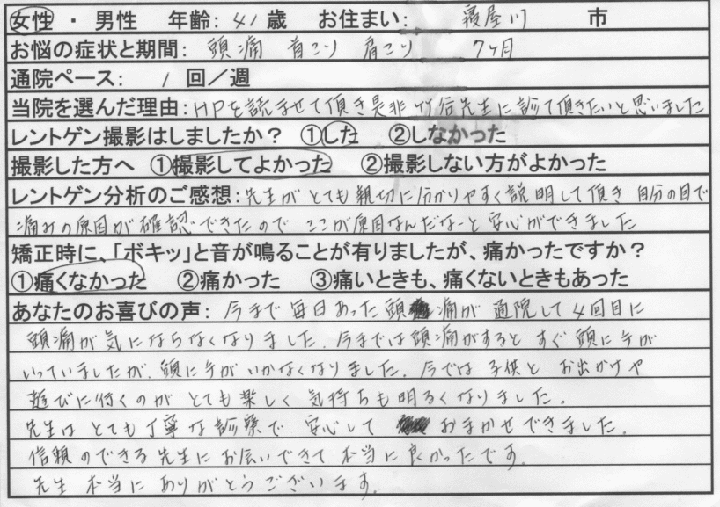 女性 ・ 男性 年齢: 41 歳 お住まい: 寝屋川 市
お悩の症状と期間: 頭痛 首こり 肩こり 7ヶ月
通院ペース: 1 回／週
当院を選んだ理由: HPを読ませて頂き是非 竹信先生に診て頂きたいと思いました
レントゲン撮影はしましたか？ ①した ②しなかった
撮影した方へ ①撮影してよかった ②撮影しない方がよかった
レントゲン分析のご感想: 先生が とても親切に分かりやすく説明して頂き 自分の目で
痛みの原因が確認できたので ここが原因なんだなーと 安心ができました
矯正時に、「ボキッ」と音が鳴ることが有りましたが、痛かったですか？
①痛くなかった ②痛かった ③痛いときも、痛くないときもあった
あなたのお喜びの声: 今まで 毎日あった 頭痛が 通院して 4回目に
頭痛が気にならなくなりました. 今までは頭痛がすると すぐ頭に手が
いっていましたが. 頭に手がいかなくなりました. 今では 子供と お出かけや
遊びに行くのが とても楽しく 気持ちも明るくなりました.
先生は とても丁寧な診察で 安心して おまかせできました.
信頼のできる先生に お会いできて 本当に良かったです.
先生 本当に ありがとうございます.